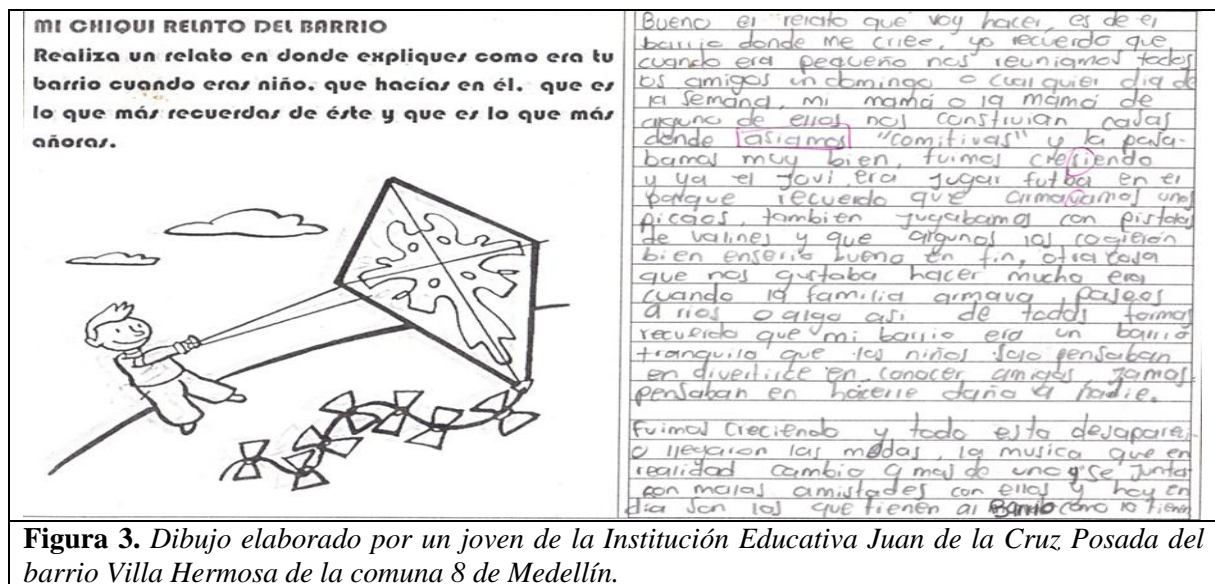 MI CHIQUI RELATO DEL BARRIO
Realiza un relato en donde expliques como era tu
barrio cuando eras niño. que hacías en él. que es
lo que más recuerdas de éste y que es lo que más
añoras.
Bueno el relato que voy hacer, es de el
barrio donde me criee, yo recuerdo que
cuando era pequeño nos reuniamos todos
os amigos un domingo o cualquier dia de
la semana, mi mamá o la mamá de
alguno de ellos nos construian casas
donde asiamos "comitivas" y la pasa-
bamos muy bien, fuimos cresiendo
y ya el jovi era jugar futbol en el
parque recuerdo que armavamos unos
picaos, tambien jugabamos con pistolas
de valines y que algunos las cogierón
bien enserio bueno en fin, otra cosa
que nos gustaba hacer mucho era
cuando la familia armava paseos
a rios o algo asi de todas formas
recuerdo que mi barrio era un barrio
tranquilo que los niños solo pensaban
en divertirce en conocer amigos jamas
pensaban en hacerle daño a nadie.
Fuimos creciendo y todo esto desapareci-
o llegaron las modas, la musica que en
realidad cambio a mas de uno y se juntar
con malas amistades con ellos y hoy en
dia son los que tienen al Barrio como lo tienen
Figura 3. Dibujo elaborado por un joven de la Institución Educativa Juan de la Cruz Posada del
barrio Villa Hermosa de la comuna 8 de Medellín.